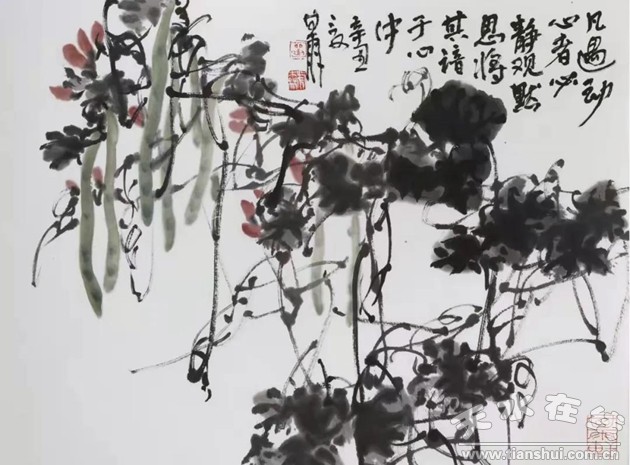 凡遇动
心者必
静观默
思将
其谙
于心
中
辛丑
天水在线
www.tianshui.com.cn